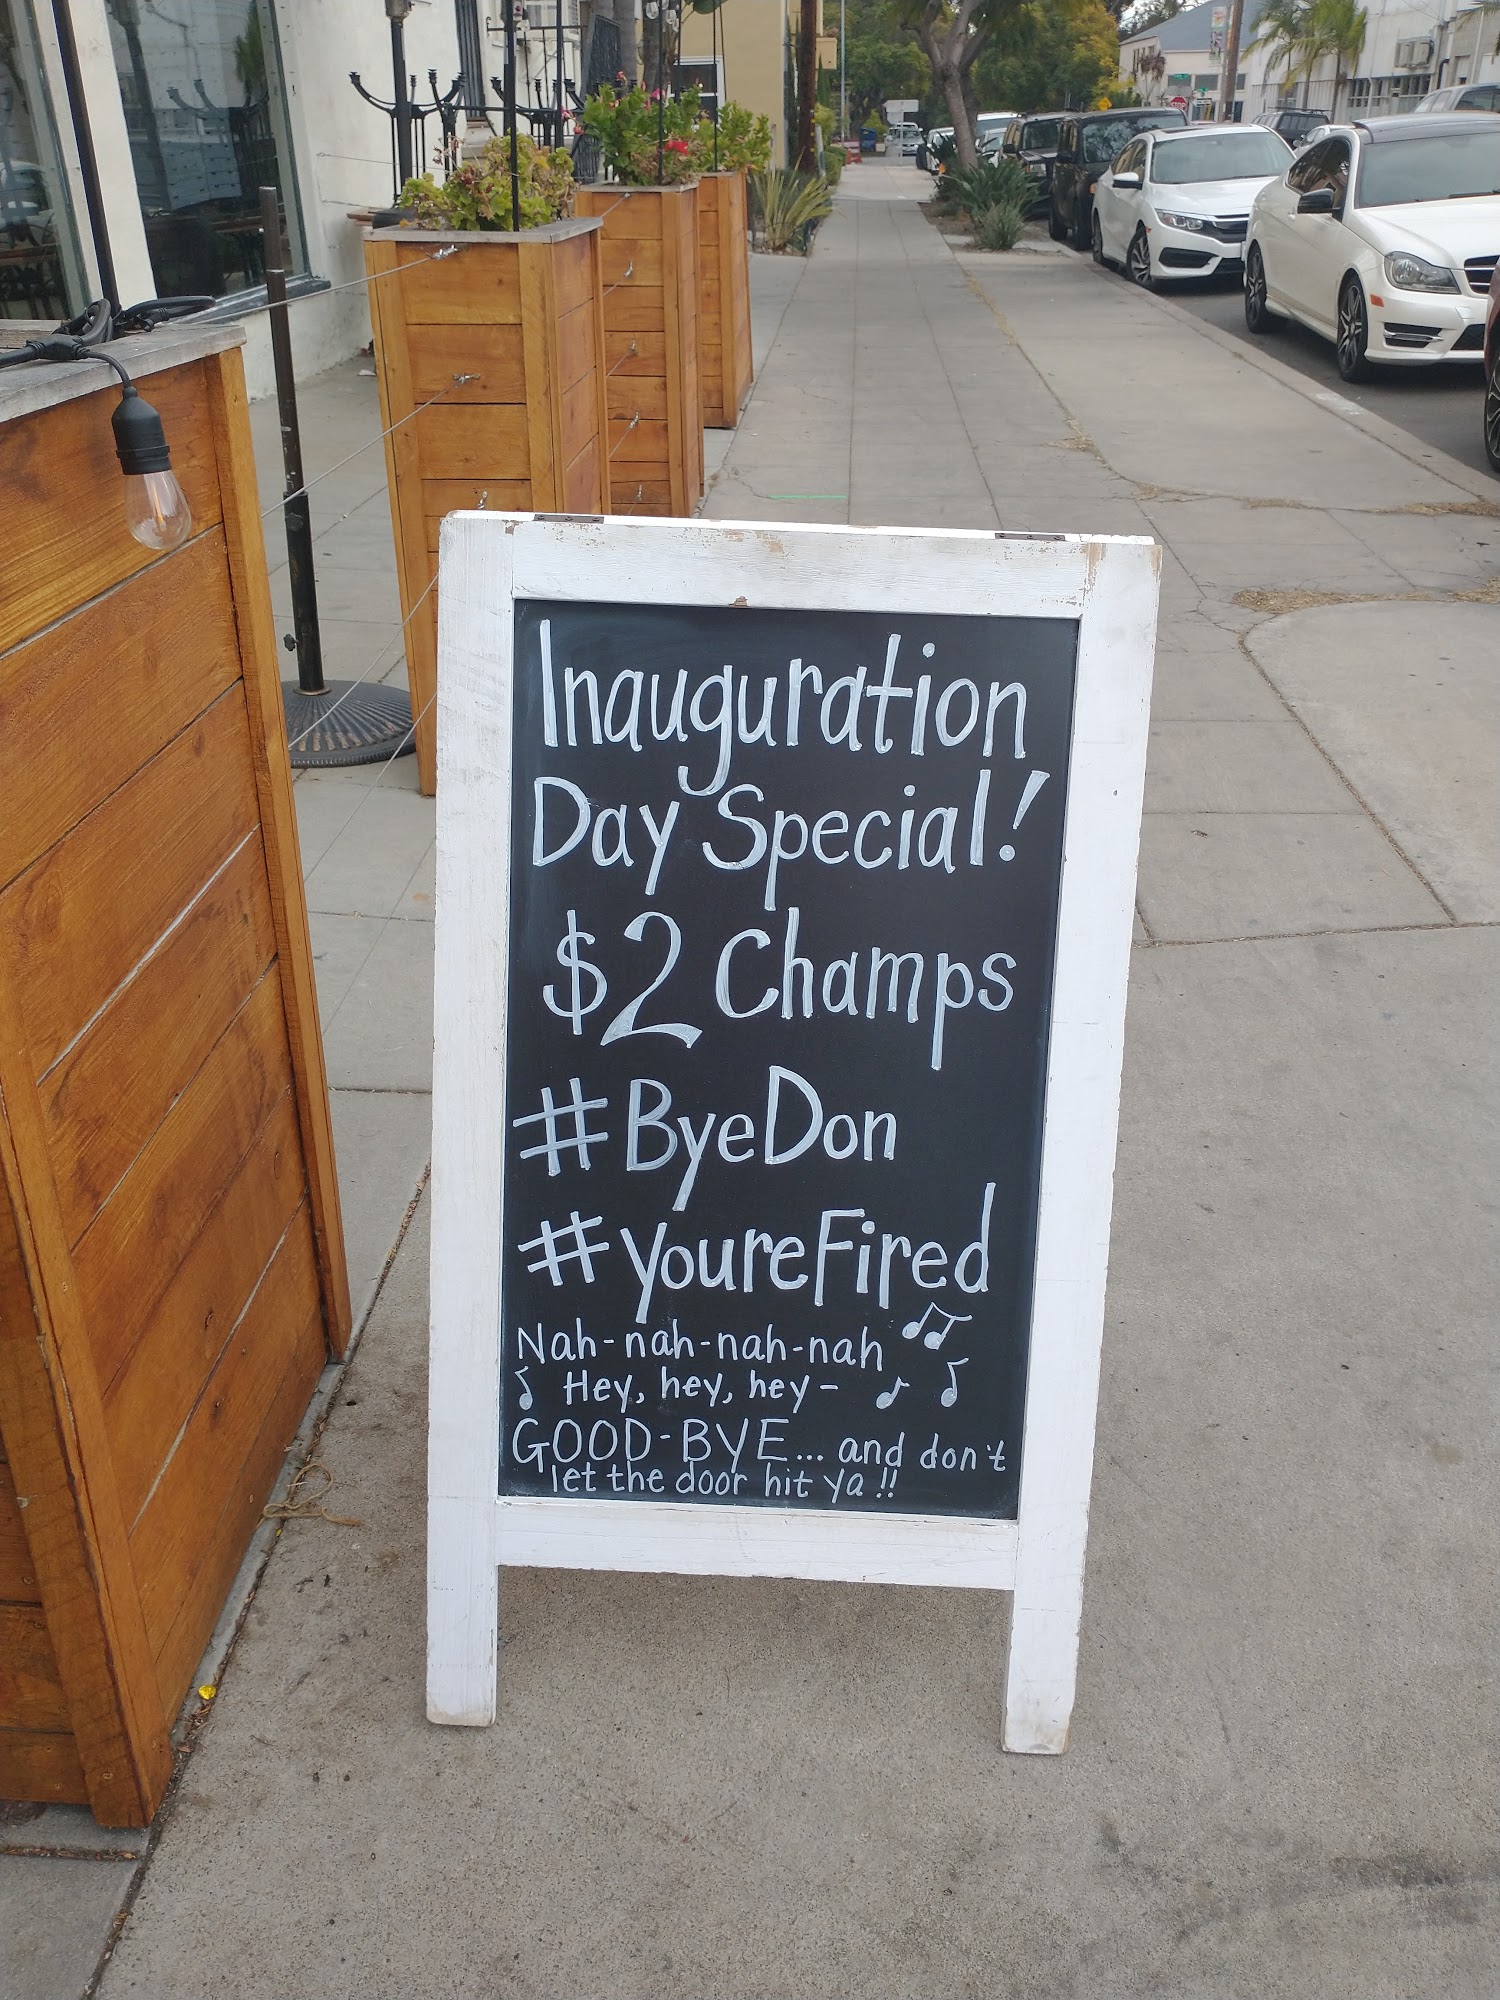 Inauguration
Day Special!
$2 Champs
#ByeDon
#YoureFired
Nah-nah-nah-nah
Hey, hey, hey-
GOOD-BYE... and don't
let the door hit ya!!